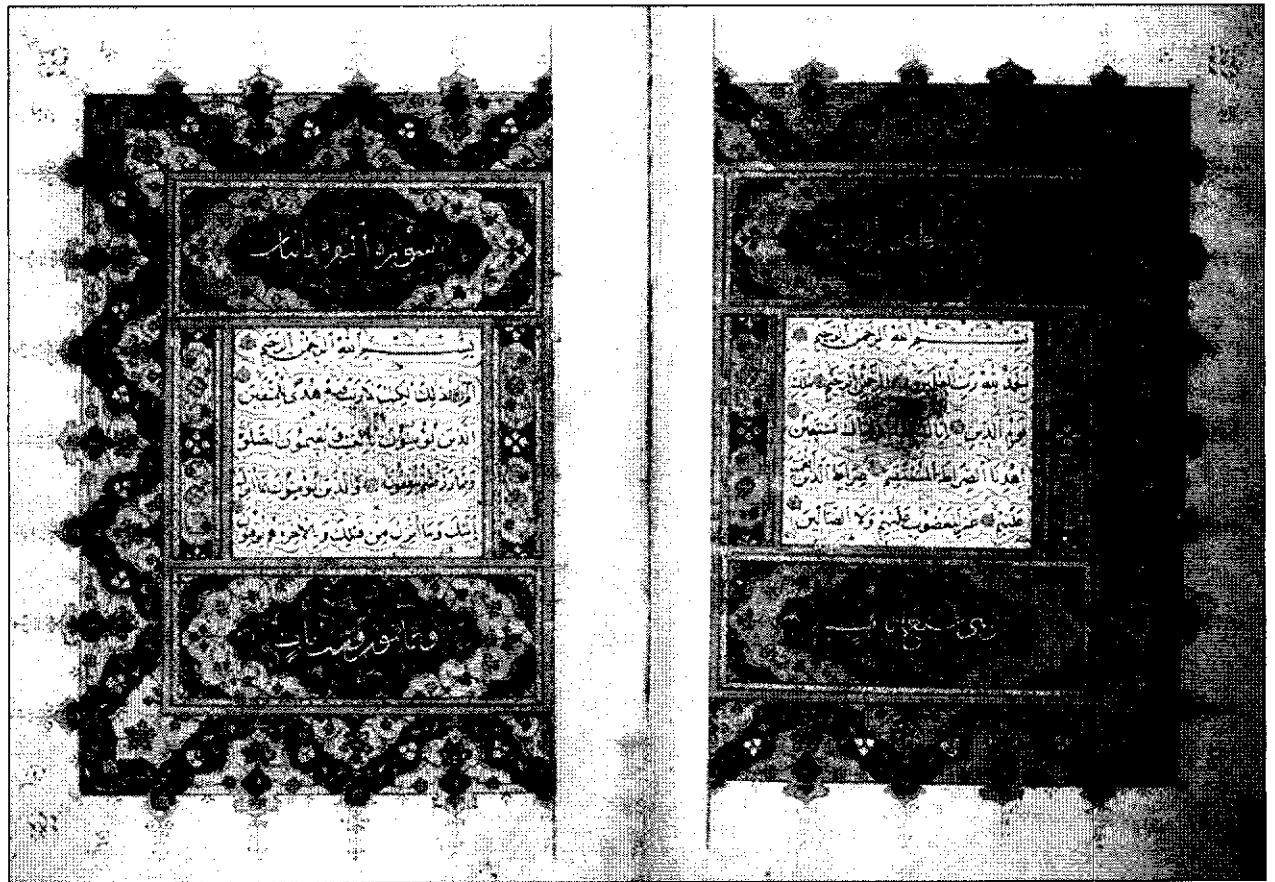 وهي سبع آيات
بِسْمِ اللهِ الرَّحْمٰنِ الرَّحِيمِ
اَلْحَمْدُ لِلهِ رَبِّ الْعَالَمِينَ الرَّحْمٰنِ الرَّحِيمِ مَالِكِ
يَوْمِ الدِّينِ اِيَّاكَ نَعْبُدُ وَاِيَّاكَ نَسْتَعِينُ
اِهْدِنَا الصِّرَاطَ الْمُسْتَقِيمَ صِرَاطَ الَّذِينَ اَنْعَمْتَ
عَلَيْهِمْ غَيْرِ الْمَغْضُوبِ عَلَيْهِمْ وَلَا الضَّالِّينَ
سورة البقرة مائتان
بِسْمِ اللهِ الرَّحْمٰنِ الرَّحِيمِ
الٓمٓ ذٰلِكَ الْكِتٰبُ لَا رَيْبَ فِيهِ هُدًى لِلْمُتَّقِينَ
الَّذِينَ يُؤْمِنُونَ بِالْغَيْبِ وَيُقِيمُونَ الصَّلٰوةَ
وَمِمَّا رَزَقْنَاهُمْ يُنْفِقُونَ وَالَّذِينَ يُؤْمِنُونَ بِمَا اُنْزِلَ
اِلَيْكَ وَمَا اُنْزِلَ مِنْ قَبْلِكَ وَبِالْاٰخِرَةِ هُمْ يُوقِنُونَ
وثمانون وست آيات